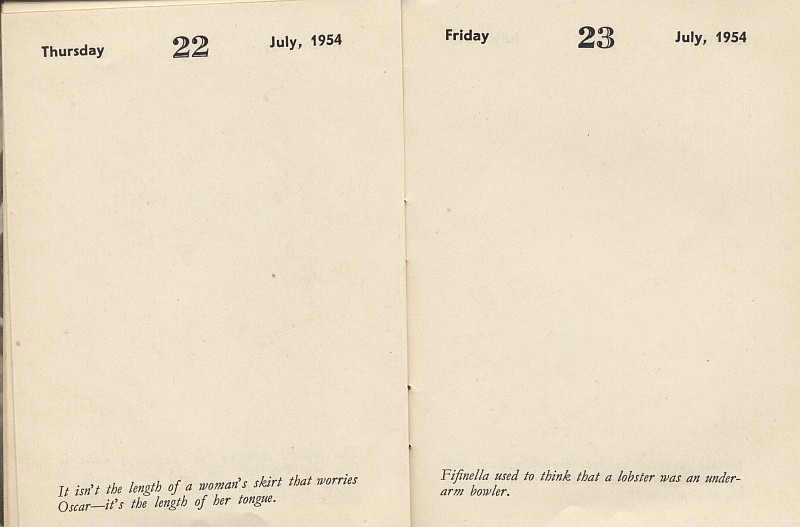 Thursday 22 July, 1954
It isn't the length of a woman's skirt that worries
Oscar—it's the length of her tongue.
Friday 23 July, 1954
Fifinella used to think that a lobster was an under-
arm bowler.